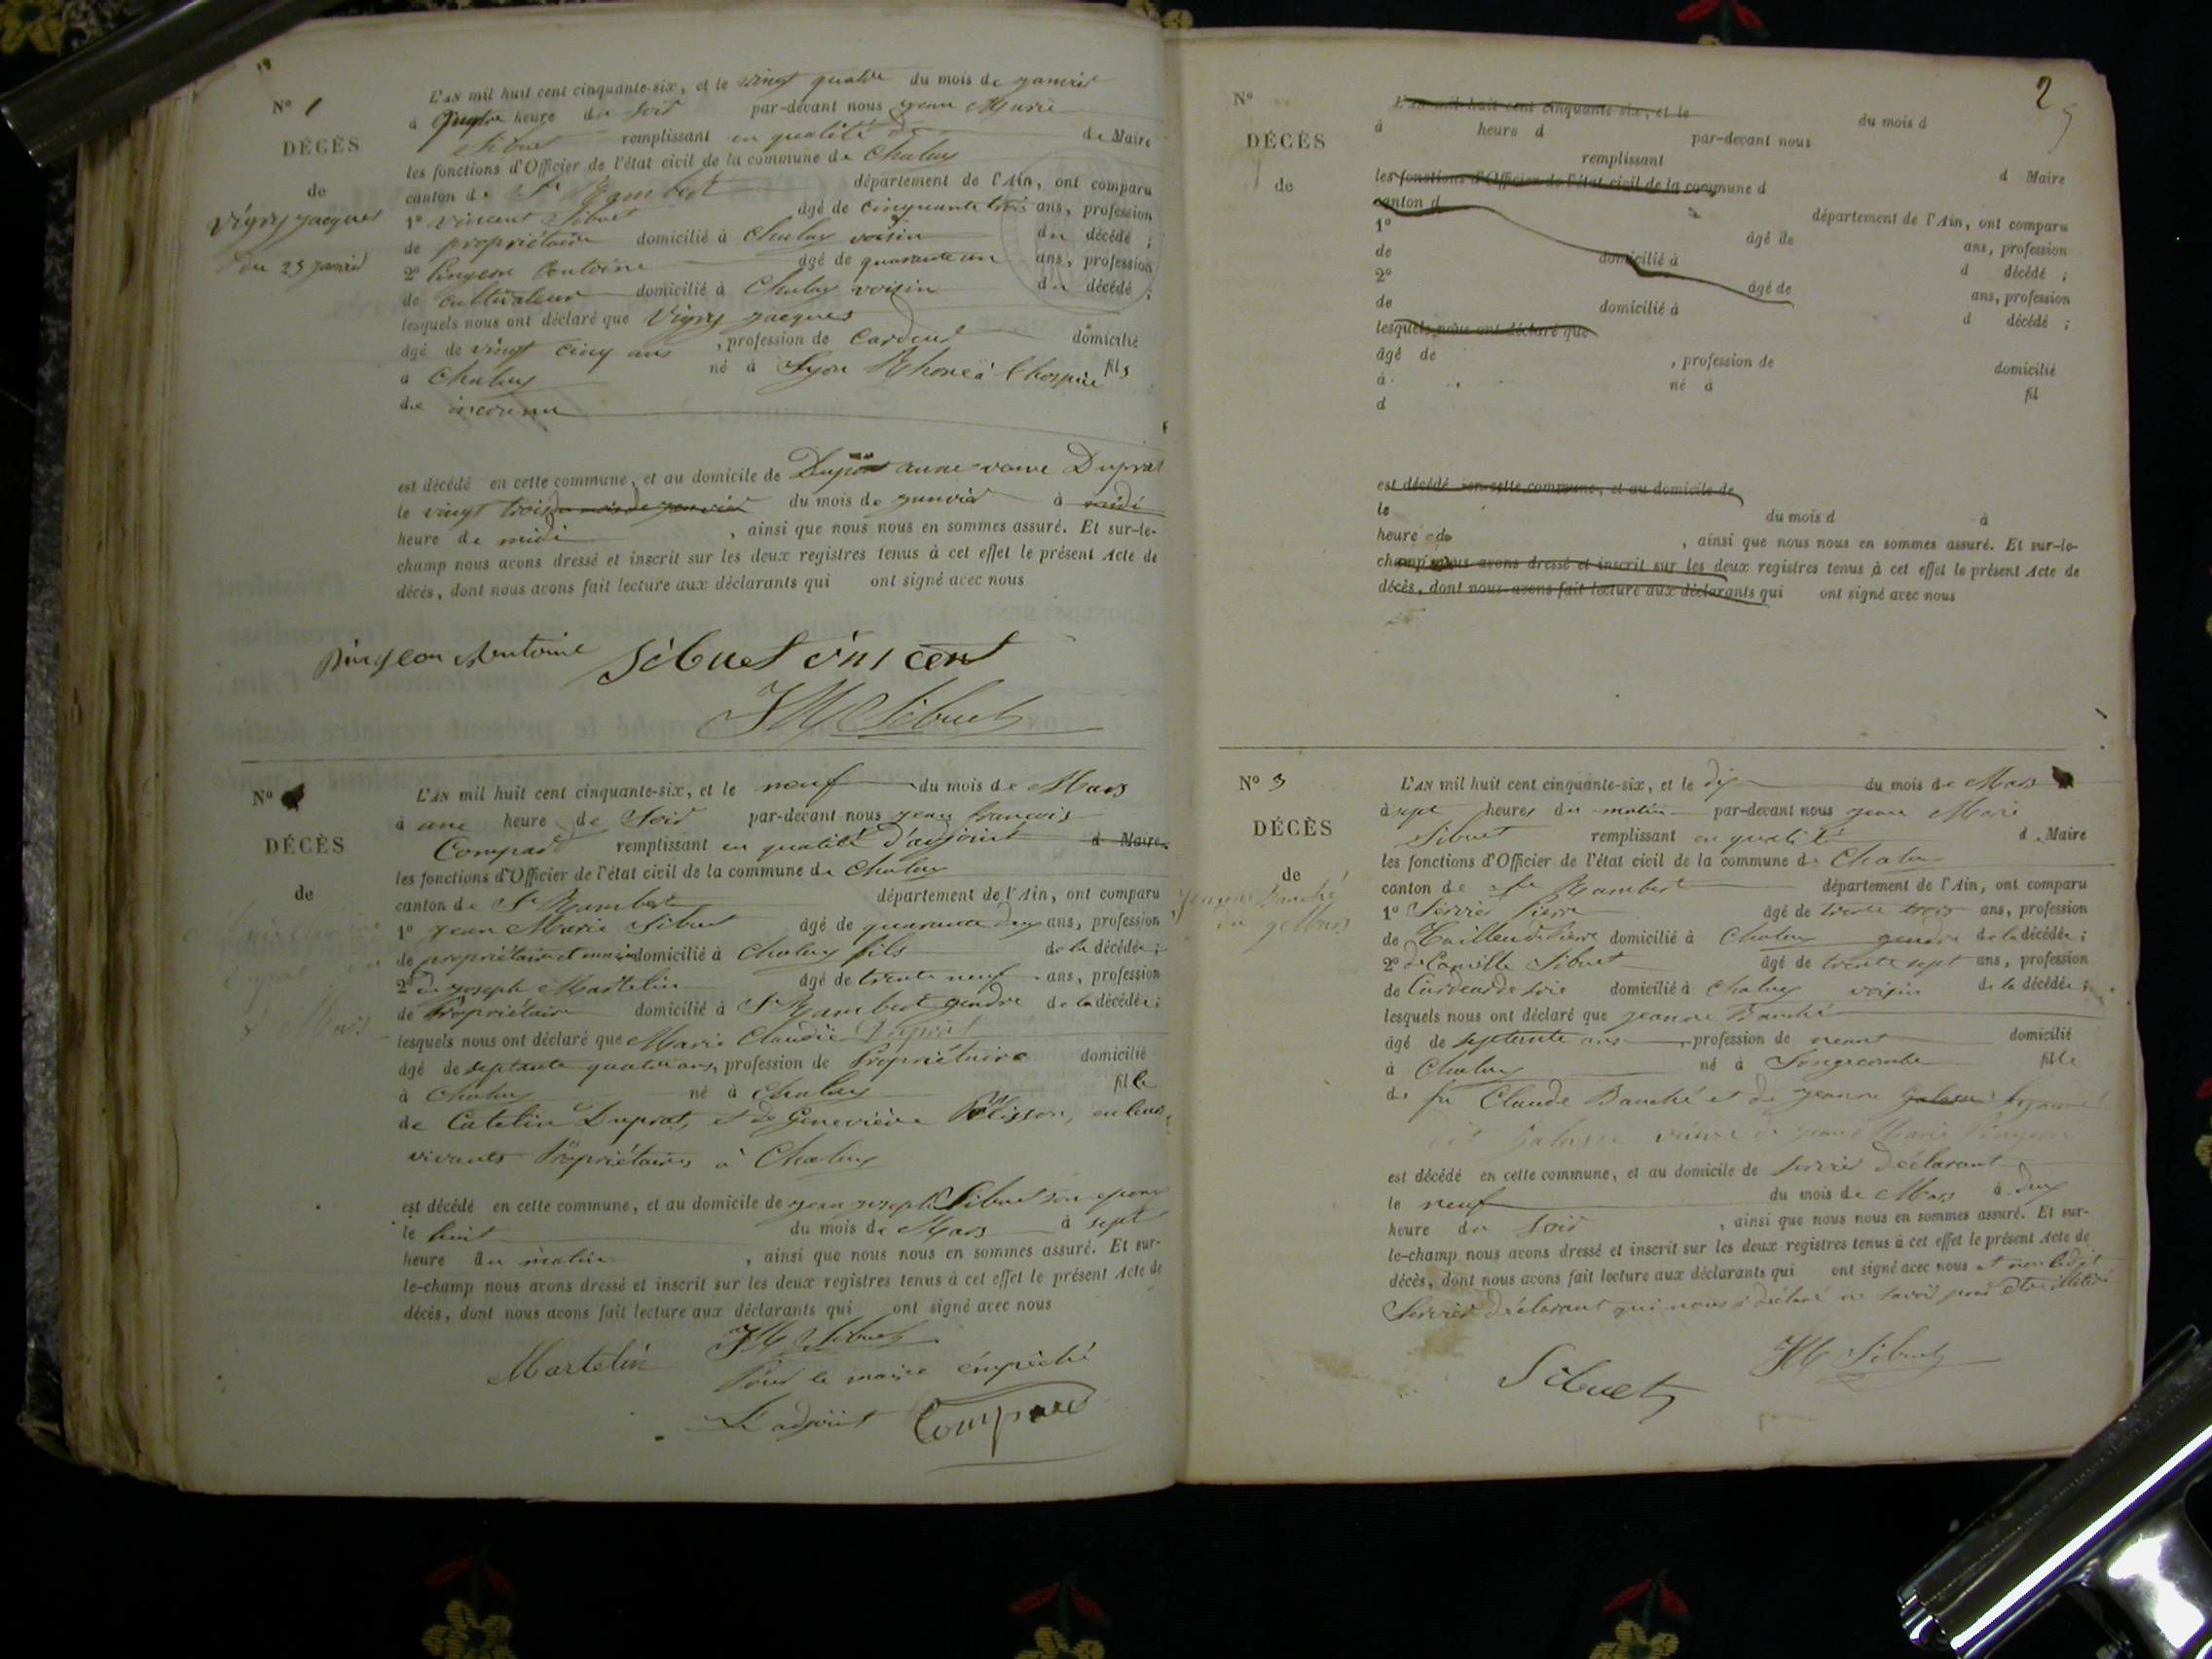 N° 1
DÉCÈS
de
Vigny jacques
du 23 janvier
L'AN mil huit cent cinquante-six, et le vingt quatre du mois de janvier
à quatre heure du soir par-devant nous jean Marie
Sibuet remplissant en qualité de de Maire
les fonctions d'Officier de l'état civil de la commune de Chaley
canton de St Rambert département de l'Ain, ont comparu
1° Vincent Sibuet âgé de cinquante trois ans, profession
de propriétaire domicilié à Chaley voisin du décédé ;
2° Pingeon Antoine âgé de quarante un ans, profession
de cultivateur domicilié à Chaley voisin du décédé ;
lesquels nous ont déclaré que Vigny jacques
âgé de vingt cinq ans , profession de Cardeur domicilié
à Chaley né à Lyon Rhone à l'hospice fils
de inconnu
est décédé en cette commune, et au domicile de Dupont anne veuve Duprat
le vingt trois du mois de janvier du mois de janvier à midi
heure de midi , ainsi que nous nous en sommes assuré. Et sur-le-
champ nous avons dressé et inscrit sur les deux registres tenus à cet effet le présent Acte de
décès, dont nous avons fait lecture aux déclarants qui ont signé avec nous
pingeon Antoine Sibuet vincent
JM Sibuet
N°
DÉCÈS
de
Duprat
8 Mars
L'AN mil huit cent cinquante-six, et le neuf du mois de Mars
à une heure de Soir par-devant nous jean françois
Compard remplissant en qualité d'adjoint d Maire
les fonctions d'Officier de l'état civil de la commune de Chaley
canton de St Rambert département de l'Ain, ont comparu
1° jean Marie Sibuet âgé de quarante deux ans, profession
de propriétaire et maire domicilié à Chaley fils de la décédée ;
2° joseph Martelin âgé de trente neuf ans, profession
de Propriétaire domicilié à St Rambert gendre de la décédée ;
lesquels nous ont déclaré que Marie Claudie Duprat
âgé de septante quatre ans, profession de Propriétaire domicilié
à Chaley né à Chaley fille
de Catelin Duprat, et de Geneviève Pelisson, en leurs
vivants Propriétaires à Chaley
est décédé en cette commune, et au domicile de jean joseph Sibuet son epoux
le huit du mois de Mars à sept
heure du matin , ainsi que nous nous en sommes assuré. Et sur-
le-champ nous avons dressé et inscrit sur les deux registres tenus à cet effet le présent Acte de
décès, dont nous avons fait lecture aux déclarants qui ont signé avec nous
Martelin JM Sibuet
Pour le maire empêché
L'adjoint Compard
2
N°
DÉCÈS
de
L'AN mil huit cent cinquante-six, et le du mois d
à heure d par-devant nous
remplissant d Maire
les fonctions d'Officier de l'état civil de la commune d
canton d département de l'Ain, ont comparu
1° âgé de ans, profession
de domicilié à d décédé ;
2° âgé de ans, profession
de domicilié à d décédé ;
lesquels nous ont déclaré que
âgé de , profession de domicilié
à né à fil
d
est décédé en cette commune, et au domicile de
le du mois d à
heure de , ainsi que nous nous en sommes assuré. Et sur-le-
champ nous avons dressé et inscrit sur les deux registres tenus à cet effet le présent Acte de
décès, dont nous avons fait lecture aux déclarants qui ont signé avec nous
N° 3
DÉCÈS
de
jeanne Banché
du 9 Mars
L'AN mil huit cent cinquante-six, et le dix du mois de Mars
à sept heures du matin par-devant nous jean Marie
Sibuet remplissant en qualité d Maire
les fonctions d'Officier de l'état civil de la commune de Chaley
canton de St Rambert département de l'Ain, ont comparu
1° Servier Pierre âgé de trente trois ans, profession
de Tailleur de Pierre domicilié à Chaley gendre de la décédée ;
2° Camille Sibuet âgé de trente sept ans, profession
de Cardeur de soie domicilié à Chaley voisin de la décédée ;
lesquels nous ont déclaré que jeanne Banché
âgé de septente ans , profession de neant domicilié
à Chaley né à Longecombe fille
de fu Claude Banché et de jeanne
dit veuve de jean Marie Pingeon
est décédé en cette commune, et au domicile de Servier déclarant
le neuf du mois de Mars à deux
heure du soir , ainsi que nous nous en sommes assuré. Et sur-
le-champ nous avons dressé et inscrit sur les deux registres tenus à cet effet le présent Acte de
décès, dont nous avons fait lecture aux déclarants qui ont signé avec nous et non ledit
Servier déclarant qui nous a déclaré ne savoir pour etre illetéré
Sibuet JM Sibuet